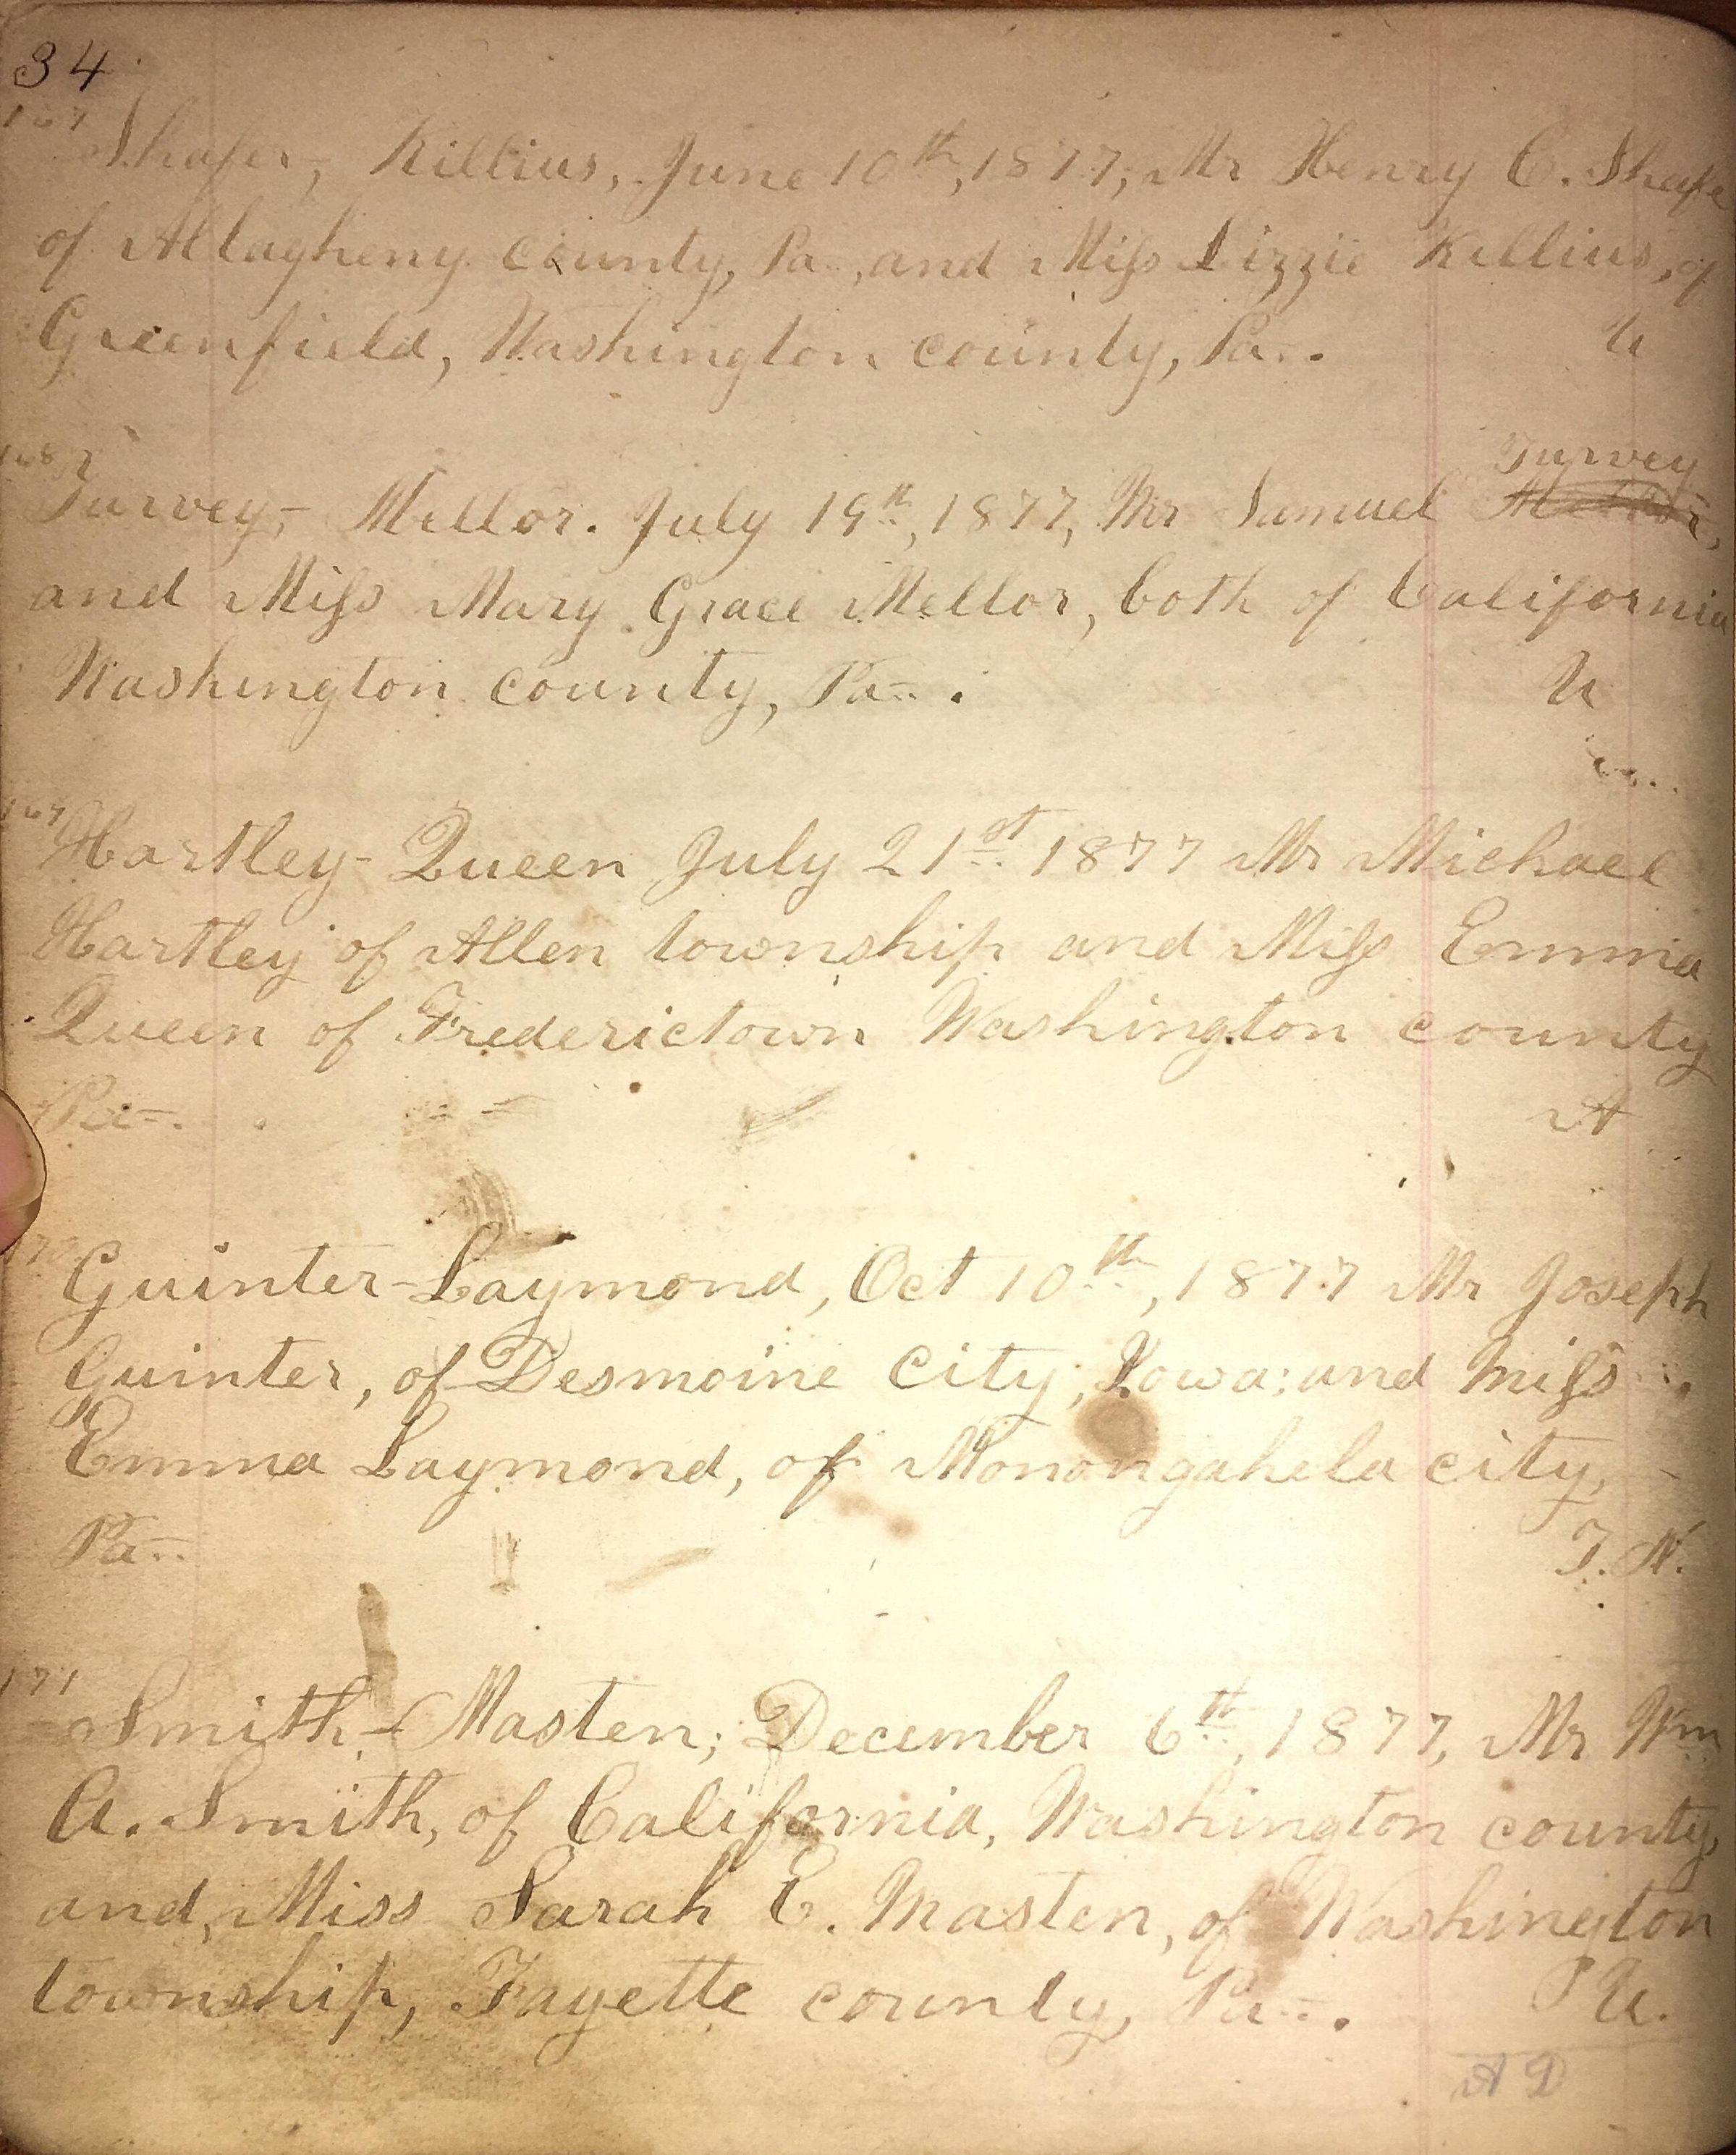 34
167
Shafer, Killius, June 10th, 1877, Mr Henry C. Shafe
of Allagheny county, Pa., and Miss Lizzie Killius, of
Greenfield, Washington county, Pa.
U
168
Turvey
Turvey,- Mellor. July 19th, 1877, Mr Samuel Mellor,
and Miss Mary Grace Mellor, both of California
Washington county, Pa.
U
169
Hartley-Queen July 21st 1877 Mr Michael
Hartley of Allen township and Miss Emma
Queen of Frederictown Washington county
Pa.
A
170
Guinter-Laymond, Oct 10th, 1877 Mr Joseph
Guinter, of Desmoine City, Iowa; and Miss
Emma Laymond, of Monongahela city,
Pa.
T. N.
171
Smith-Masten; December 6th, 1877, Mr Wm
A. Smith, of California, Washington county,
and, Miss Sarah E. Masten, of Washineglon
township, Fayette county, Pa.
U.
A D